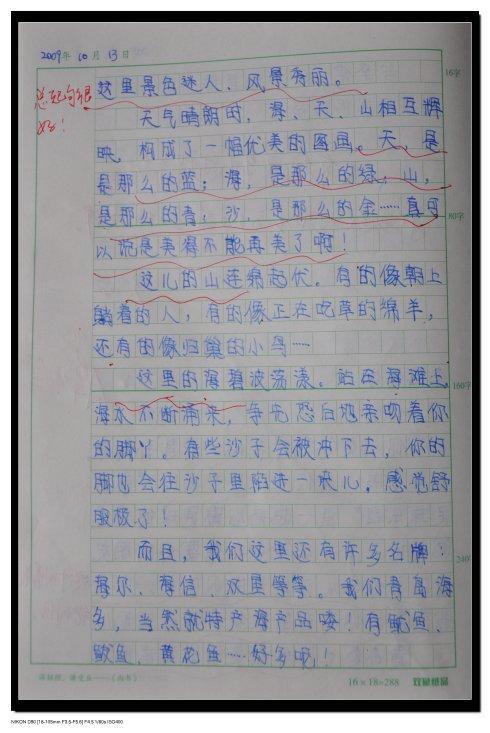 2009年 10 月 13 日
16字
总起句很
好！
这里景色迷人、风景秀丽。
天气晴朗时，海、天、山相互辉
映，构成了一幅优美的图画。天，是
是那么的蓝；海，是那么的绿；山，
是那么的青；沙，是那么的金……真可
80字
以说是美得不能再美了啊！
这儿的山连绵起伏。有的像朝上
躺着的人，有的像正在吃草的绵羊，
还有的像归巢的小鸟……
这里的海碧波荡漾。站在海滩上，
160字
海水不断涌来，争先恐后地亲吻着你
的脚丫。有些沙子会被冲下去，你的
脚也会往沙子里陷进一点儿。感觉舒
服极了！
而且，我们这里还有许多名牌：
240字
海尔、海信、双星等等。我们青岛海
多，当然就特产海产品喽！有鱿鱼、
鲅鱼、黄花鱼……好多呢！
满招损，谦受益——《尚书》
16×18=288
NIKON D80 [18-105mm F3.5-F5.6] F4.5 1/60s ISO400